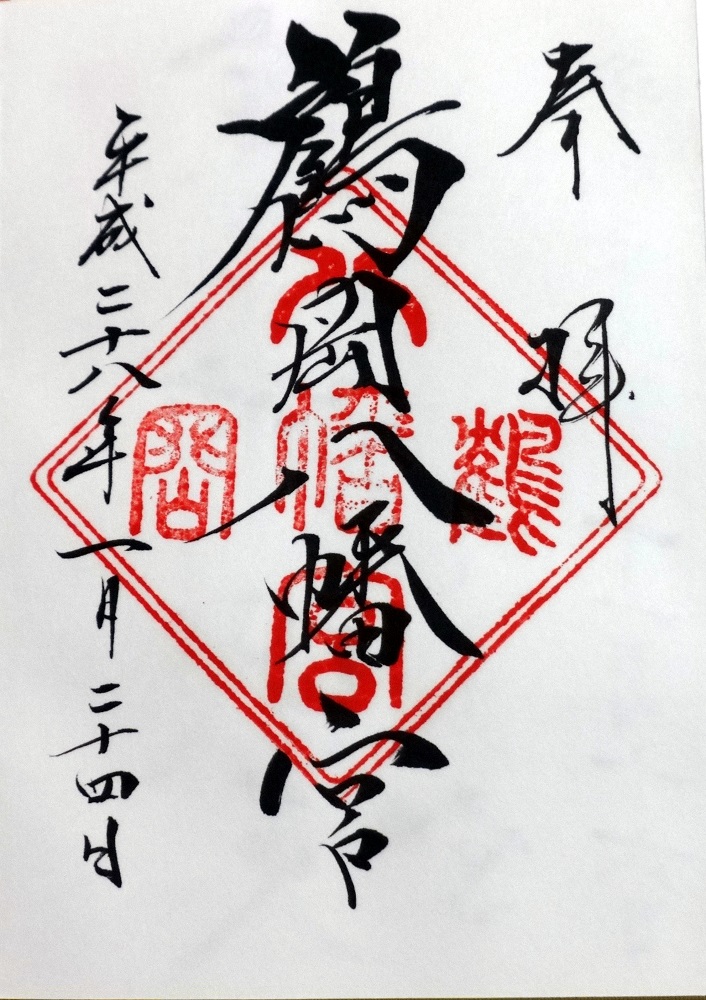 奉拝
鶴岡八幡宮
平成二十八年一月二十四日
鶴
八
幡
宮
岡